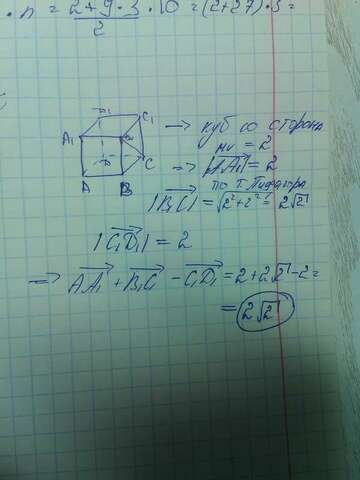 · n = 2+9·3/2 · 10 = (2+27)·5 =
D₁ C₁
A₁ B₁
D C
A B
→ куб со сторона
ми = 2
⇒ |AA₁| = 2
по т. Пифагора
|B₁C| = √2²+2² = 2√2
|C₁D₁| = 2
⇒ AA₁ + B₁C - C₁D₁ = 2+2√2-2=
= 2√2